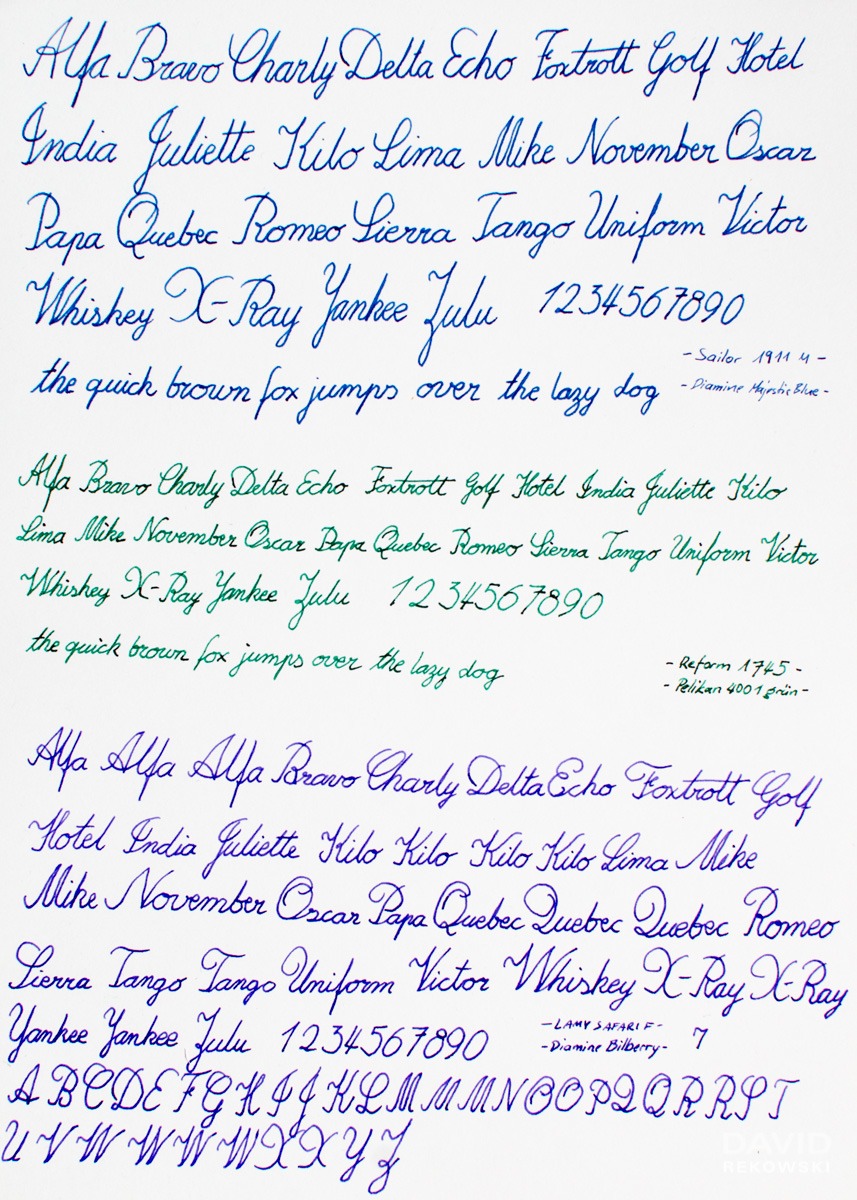 Alfa Bravo Charly Delta Echo Foxtrott Golf Hotel
India Juliette Kilo Lima Mike November Oscar
Papa Quebec Romeo Sierra Tango Uniform Victor
Whiskey X-Ray Yankee Zulu 1234567890
- Sailor 1911 M -
the quick brown fox jumps over the lazy dog
- Diamine Majestic Blue -
Alfa Bravo Charly Delta Echo Foxtrott Golf Hotel India Juliette Kilo
Lima Mike November Oscar Papa Quebec Romeo Sierra Tango Uniform Victor
Whiskey X-Ray Yankee Zulu 1234567890
the quick brown fox jumps over the lazy dog
- Reform 1745 -
- Pelikan 4001 grün -
Alfa Alfa Alfa Bravo Charly Delta Echo Foxtrott Golf
Hotel India Juliette Kilo Kilo Kilo Kilo Lima Mike
Mike November Oscar Papa Quebec Quebec Quebec Romeo
Sierra Tango Tango Uniform Victor Whiskey X-Ray X-Ray
Yankee Yankee Zulu 1234567890
- LAMY SAFARI F - 7
- Diamine Bilberry -
A B C D E F G H I J K L M M M N O O P Q Q R R S T
U V W W W W X X Y Z
DAVID
REKOWSKI